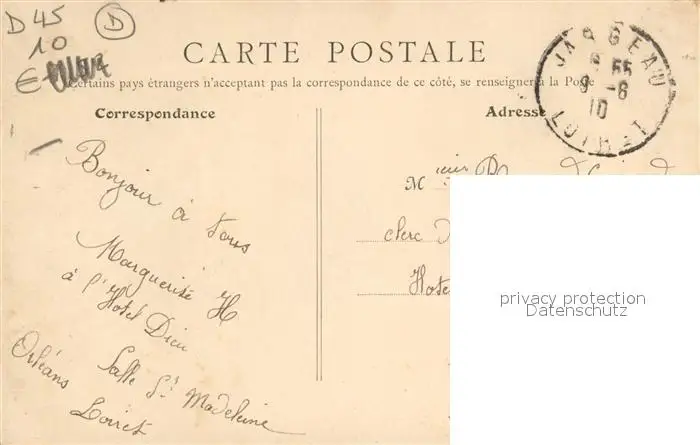 D45
D
10
€
CARTE POSTALE
Certains pays étrangers n'acceptant pas la correspondance de ce côté, se renseigner à la Poste
JARGEAU
9 -6
10
LOIRET
Correspondance
Adresse
Bonjour à tous
Marguerite H
à l'Hotel Dieu
Salle St Madeleine
Orléans
Loiret
Mieur
clerc
Hotel
privacy protection
Datenschutz